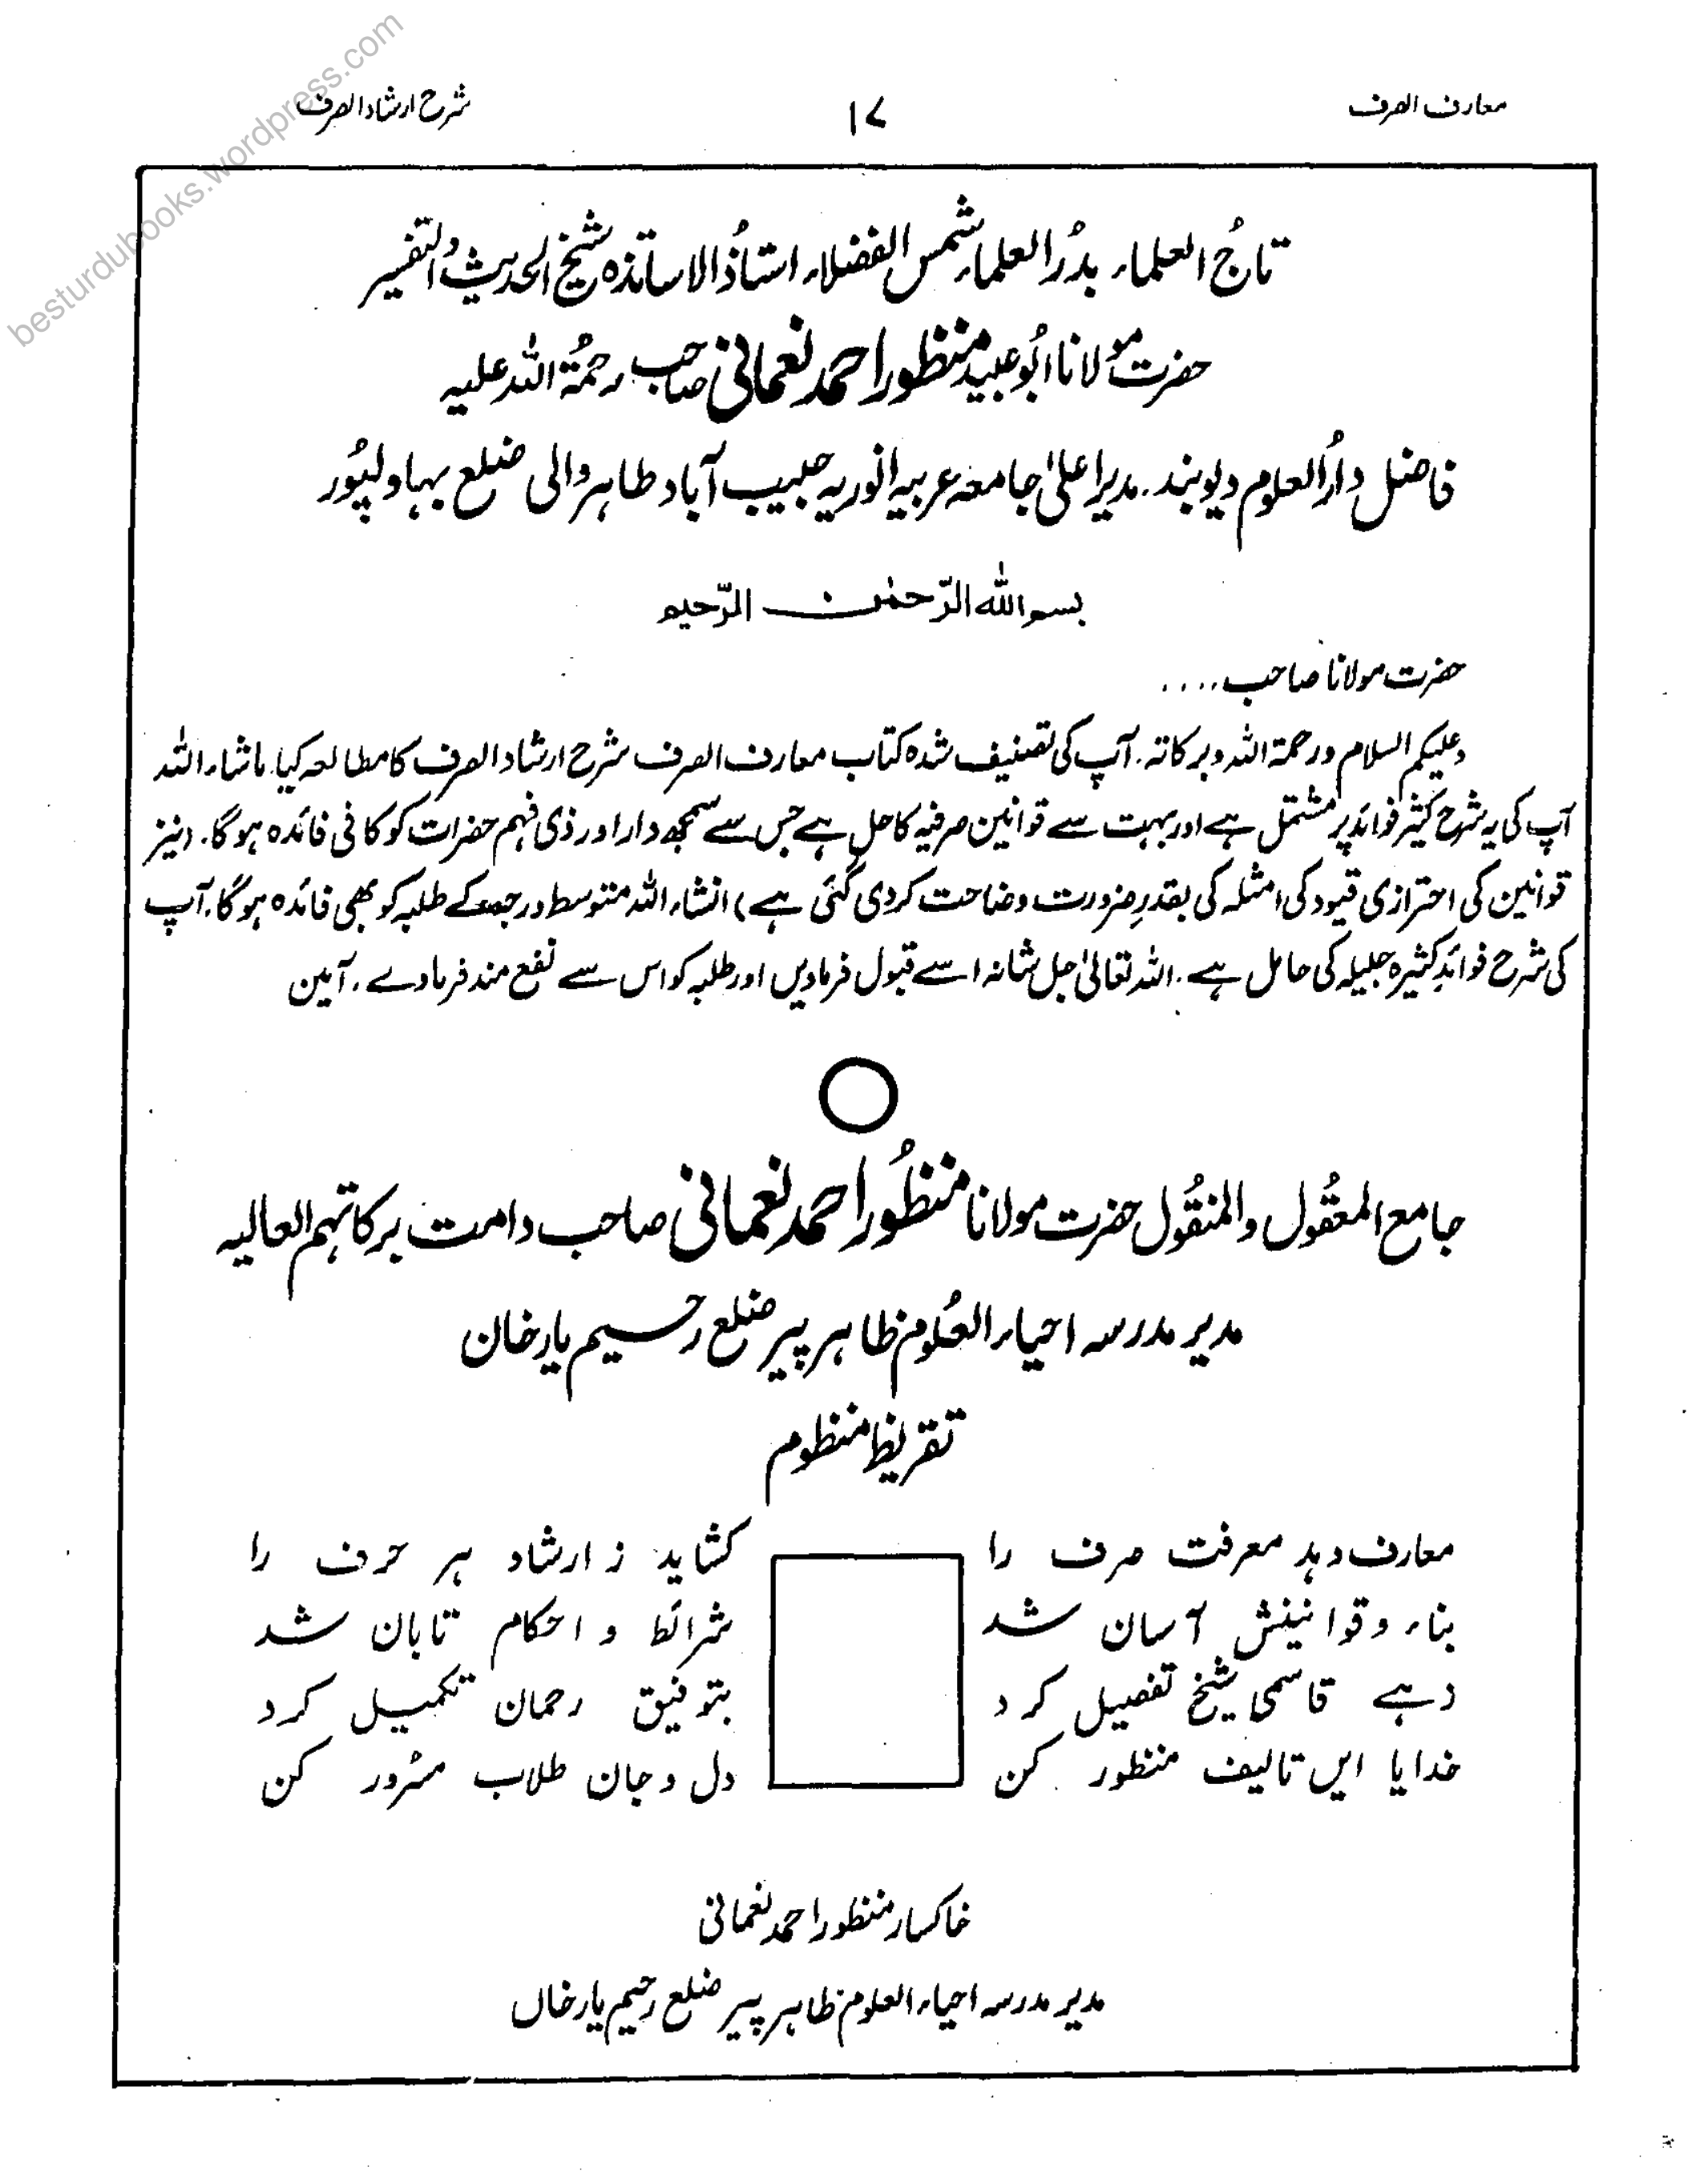 معارف الصرف ۱۷ شرح ارشاد الصرف
besturdubooks.wordpress.com
تاجُ العلماء بدرُ العلماء شمس الفضلاء استاذُ الاساتذہ شیخ الحدیث والتفسیر
حضرت مولانا ابُو عبید منظور احمد نعمانی صاحب رحمۃُ اللہ علیہ
فاضل دارُالعلوم دیوبند۔ مدیر اعلیٰ جامعہ عربیہ انوریہ حبیب آباد طاہر والی ضلع بہاولپُور
بسم اللہ الرّحمٰن الرّحیم
حضرت مولانا صاحب....
وعلیکم السلام ورحمۃ اللہ وبرکاتہ۔ آپ کی تصنیف شدہ کتاب معارف الصرف شرح ارشاد الصرف کا مطالعہ کیا۔ ماشاء اللہ
آپ کی یہ شرح کثیر فوائد پر مشتمل ہے اور بہت سے قوانین صرفیہ کا حل ہے جس سے سمجھ دار اور ذی فہم حضرات کو کافی فائدہ ہوگا۔ (نیز
قوانین کی احترازی قیود کی امثلہ کی بقدرِ ضرورت وضاحت کردی گئی ہے) انشاء اللہ متوسط درجے کے طلبہ کو بھی فائدہ ہوگا۔ آپ
کی شرح فوائدِ کثیرہ جلیلہ کی حامل ہے۔ اللہ تعالیٰ جل شانہ اسے قبول فرمادیں اور طلبہ کو اس سے نفع مند فرمادے۔ آمین
جامع المعقُول والمنقُول حضرت مولانا منظُور احمد نعمانی صاحب دامت برکاتہم العالیہ
مدیر مدرسہ احیاء العُلوم ظاہر پیر ضلع رحیم یار خان
تقریظ منظوم
معارف دہد معرفت صرف را کشاید ز ارشاد ہر حرف را
بناء و قوانینش آسان شد شرائط و احکام تابان شد
زہے قاسمی شیخ تفصیل کرد بتوفیق رحمان تکمیل کرد
خدایا ایں تالیف منظور کن دل و جان طلاب مسُرور کن
خاکسار منظور احمد نعمانی
مدیر مدرسہ احیاء العلوم ظاہر پیر ضلع رحیم یار خاں